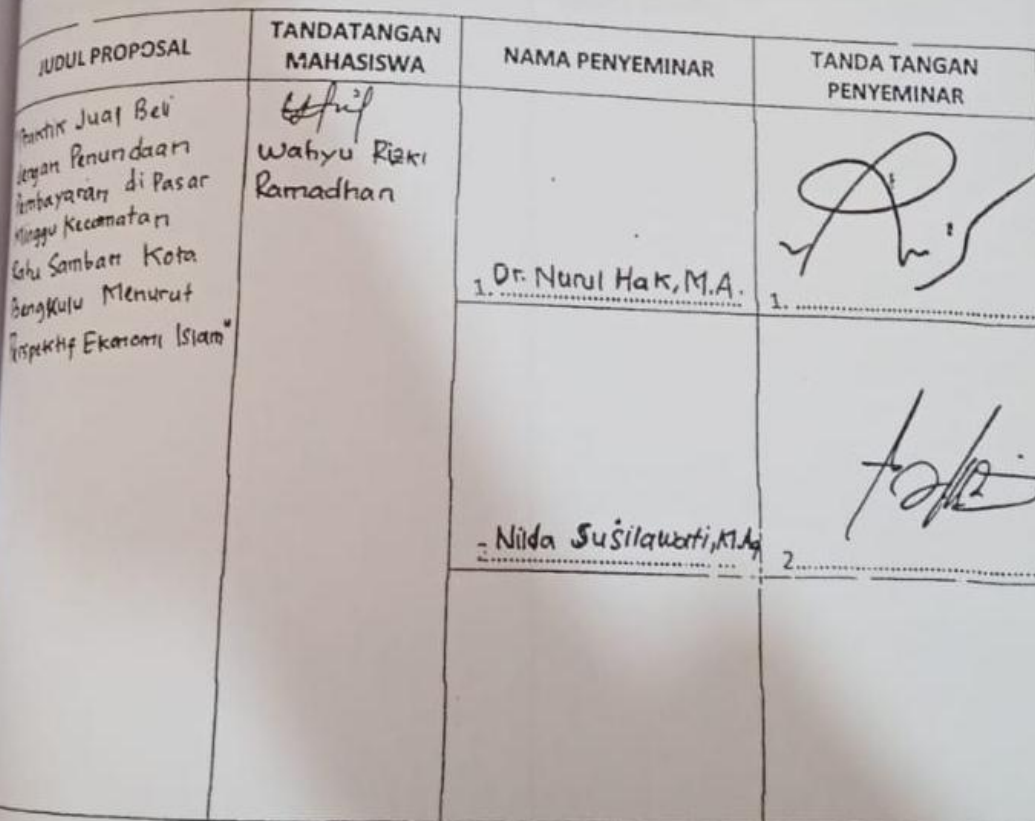 JUDUL PROPOSAL
TANDATANGAN
MAHASISWA
NAMA PENYEMINAR
TANDA TANGAN
PENYEMINAR
Jual Beli
dengan Penundaan
Pembayaran di Pasar
Minggu Kecamatan
Samban Kota
Bengkulu Menurut
Perspektif Ekonomi Islam"
Wahyu Rizki
Ramadhan
1. Dr. Nurul Hak, M.A.
1.
Nilda Susilawati, M.Ag
2.